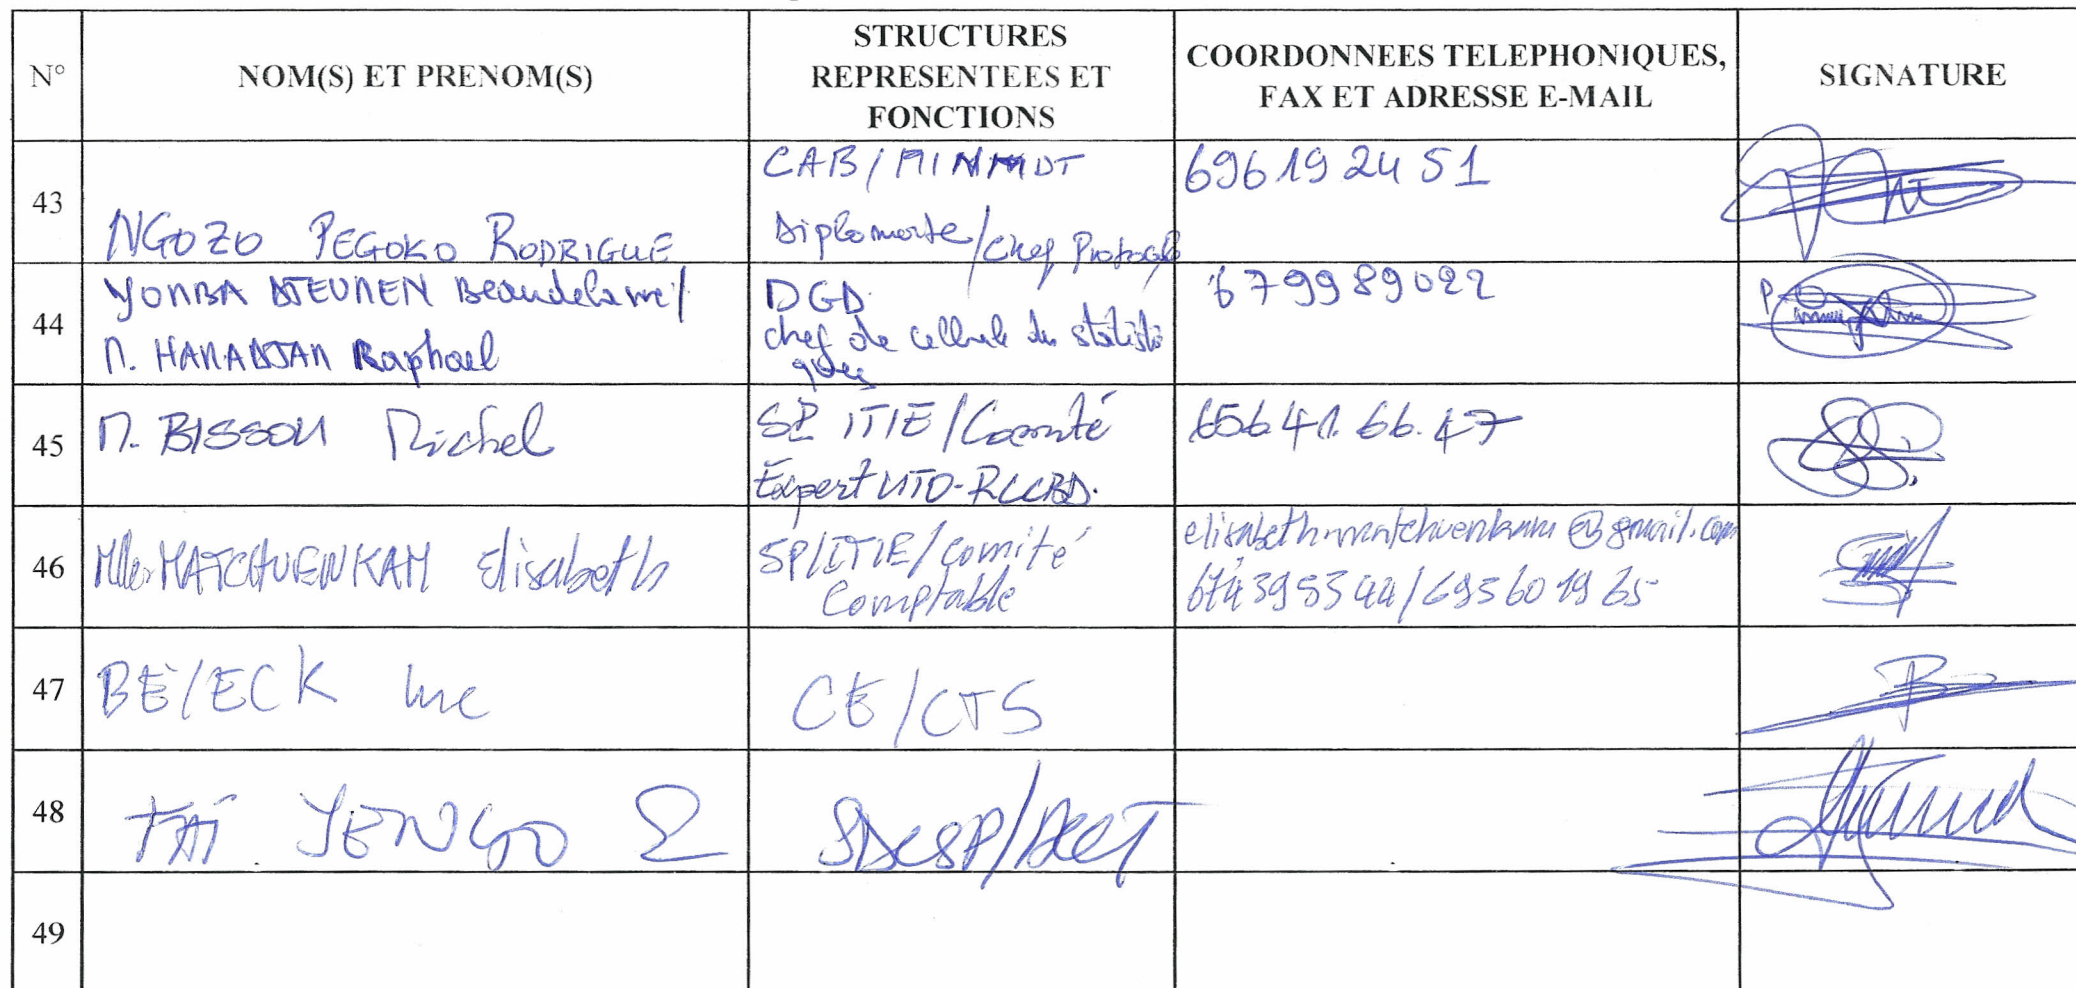 N°
NOM(S) ET PRENOM(S)
STRUCTURES
REPRESENTEES ET
FONCTIONS
COORDONNEES TELEPHONIQUES,
FAX ET ADRESSE E-MAIL
SIGNATURE
43
NGOZO PEGOKO RODRIGUE
CAB/MINMIDT
Diplomate/Chef Protocole
696 19 24 51
44
YOMBA Beaudelaire/
M. HAMADJAM Raphael
DGD
chef de cellule des statisti
ques
679989022
45
M. BISSOU Michel
SP ITIE/Comité
Expert
656 41. 66. 47
46
Mlle MATCHUENKAM Elisabeth
SP/ITIE/Comité
Comptable
elisabethmatchuenkam@gmail.com
674395344/695601965
47
BE/ECK Luc
CE/CTS
48
TAÏ YENGO
49